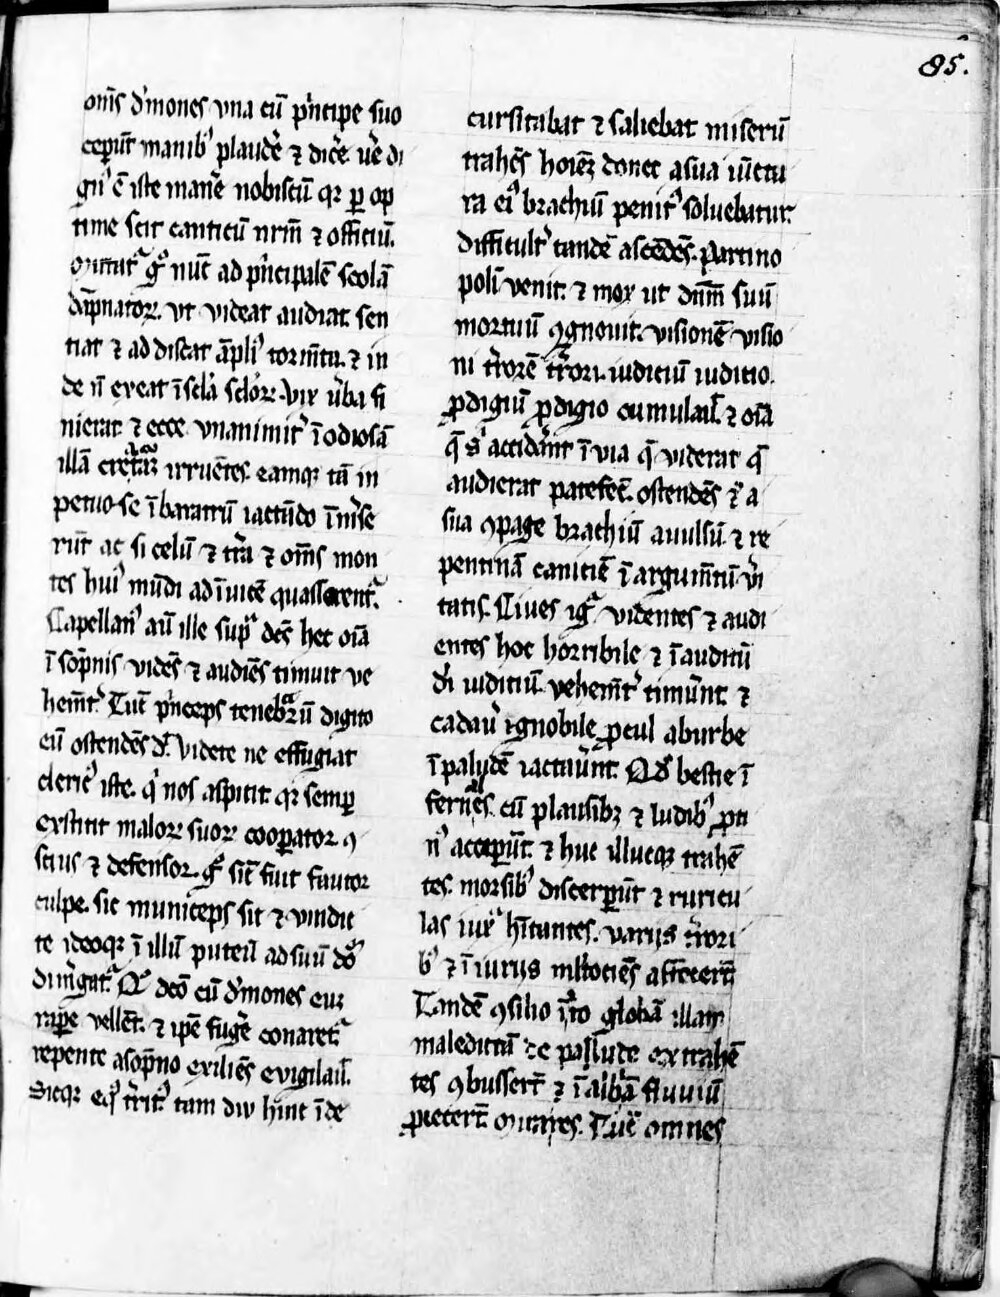 85.
om̄s d'mones vna cū p'ncipe suo
ceper̄t manib' plaud'e ⁊ dic'e. ve' di
gn' ē iste man'e nobiscū qr ꝑ op
time scit canticū nr̄m ⁊ officiū.
nūc ad p'ncipalē scolā
dāpnatorꝝ. vt videat audiat. sen
tiat ⁊ addiscat āpli' torm̄ta. ⁊ in
de n̄ exeat ī scl'a sclorꝝ. Vix v'ba fi
nierat. ⁊ ecce vnanimit' ī odiosā
illā irruētes. eamqꝫ tā in
petuo se ī baratrū iactūdo īm'se
rūt ac si celū ⁊ tr̄a ⁊ om̄s mon
tes hui' mūdi ad īuicē quassarent'.
Capellan' aū ille sup' dc̄s hec oīa
ī sōpnis vidēs ⁊ audiēs timuit ve
hem̄t'. Tūc p'nceps tenebraꝝ digito
eū ostendēs d'. Videte ne effugiat
cleric' iste. q' nos aspicit. qr semꝑ
exstitit malorꝝ suorꝝ cooꝑator. ꝯ
scius ⁊ defensor. sic̄ fuit fautor
culpe. sic municeps sit ⁊ vindic
te ideoqꝫ ī illū puteū ad suū
dirigat'. eū d'mones
raꝑe vellēt. ⁊ ip̄e fug'e conaret'
repente a sōpno exiliēs evigilaū.
Sicqꝫ tam diu hinc īde
cursitabat ⁊ saliebat miserū
trahēs hoīeꝫ donec a sua iūctu
ra ei' brachiū penit' soluebatur.
Difficult' tandē ascēdēs. Partino
poli venit. ⁊ mox ut dn̄m suū
mortuū ꝯgnouit. visionē visio
ni t'rorē t'rori. iudiciū iuditio.
ꝓdigiū ꝓdigio cumulaū. ⁊ oīa
q̄ s' accid'ant ī via q̄ viderat q̄
audierat patefec̄. ostendēs a
sua ꝯpage brachiū auulsū. ⁊ re
pentinā canitiē ī argum̄tū v'i
tatis. Ciues ig' videntes ⁊ audi
entes hoc horribile ⁊ ī auditū
d'i iuditiū. vehem̄t' timu'nt. ⁊
cadau' ignobile ꝓcul ab urbe
ī paludē iactau'nt. Qd' bestie ī
fernales cū plausibꝫ ⁊ ludib' ꝓti
n' acceper̄t. ⁊ huc illucqꝫ trahē
tes. morsib' discerper̄t ⁊ ruricu
las iux' hītantes. variis t'rori
b' ⁊ īiurus m̄ltociēs affecer̄t
Tandē ꝯsilio glebā illam
maledictā de palude extrahē
tes ꝯbusser̄t ⁊ ī albā fluuiū
ꝓiecer̄t omnes